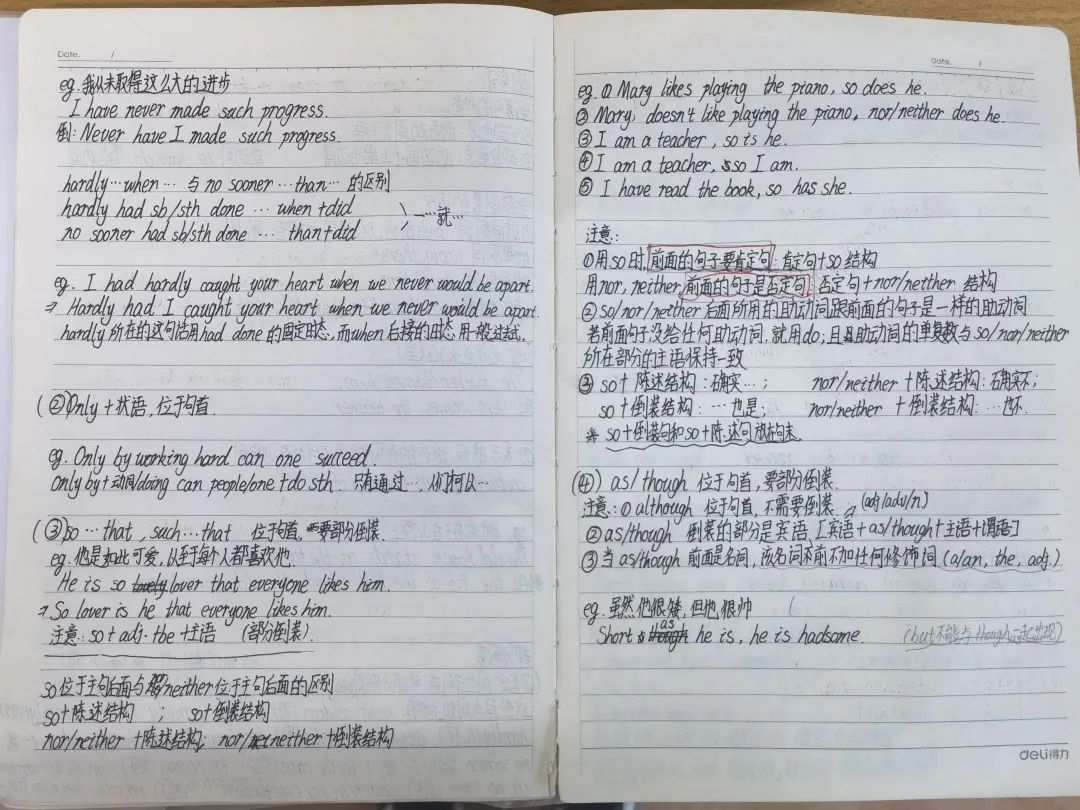 Date. /
eg. 我从未取得这么大的进步
I have never made such progress.
倒: Never have I made such progress.
hardly…when… 与 no sooner…than… 的区别
hardly had sb/sth done … when +did
no sooner had sb/sth done … than+did
一…就…
eg. I had hardly caught your heart when we never would be apart.
→ Hardly had I caught your heart when we never would be apart.
hardly 所在的这句话用had done 的固定时态,而when 后接的时态,用一般过去式.
(②) Only + 状语, 位于句首.
eg. Only by working hard can one succeed.
Only by + 动词/doing can people/one +do sth. 只有通过… 人们可以…
(③) so … that, such…that 位于句首, 要部分倒装.
eg. 他是如此可爱, 从至于每个人都喜欢他.
He is so lover that everyone likes him.
→ So lover is he that everyone likes him.
注意: so + adj. +be +主语 (部分倒装).
so 位于主句后面与 /neither 位于主句后面的区别
so+陈述结构 ; so+倒装结构
nor/neither +陈述结构; nor/neither +倒装结构
Date. /
eg. ① Mary likes playing the piano, so does he.
② Mary, doesn't like playing the piano, nor/neither does he.
③ I am a teacher, so is he.
④ I am a teacher, so I am.
⑤ I have read the book, so has she.
注意:
①用 so 时, 前面的句子要肯定句: 肯定句+so 结构
用nor, neither, 前面的句子是否定句: 否定句+nor/neither 结构
② so/nor/neither 后面所用的助动词跟前面的句子是一样的助动词
若前面句子没给任何助动词, 就用do; 且助动词的单复数与so/nor/neither
所在部分的主语保持一致
③ so+ 陈述结构: 确实…; nor/neither +陈述结构: 确实不;
so +倒装结构: …也是; nor/neither +倒装结构: …也不.
※ so+倒装句和so+陈述句放在句末.
(④) as/though 位于句首, 要部分倒装.
注意: ① although 位于句首, 不需要倒装. (adj/adv/n)
② as/though 倒装的部分是宾语. [宾语+as/though+主语+谓语]
③ 当as/though 前面是名词, 该名词前不加任何修饰词 (a/an, the, adj.)
eg. 虽然他很矮, 但他很帅 (
Short as he is, he is hadsome. (but不能与though一起出现)
deli得力